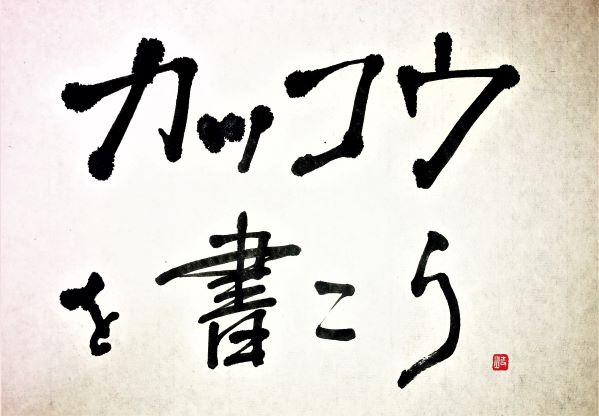 カッコウ
を書こう